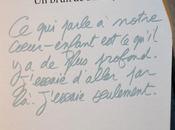 Un brin de
Ce qui parle à notre
coeur-enfant est ce qu'il
y a de plus profond.
J'essaie d'aller par
là. J'essaie seulement.